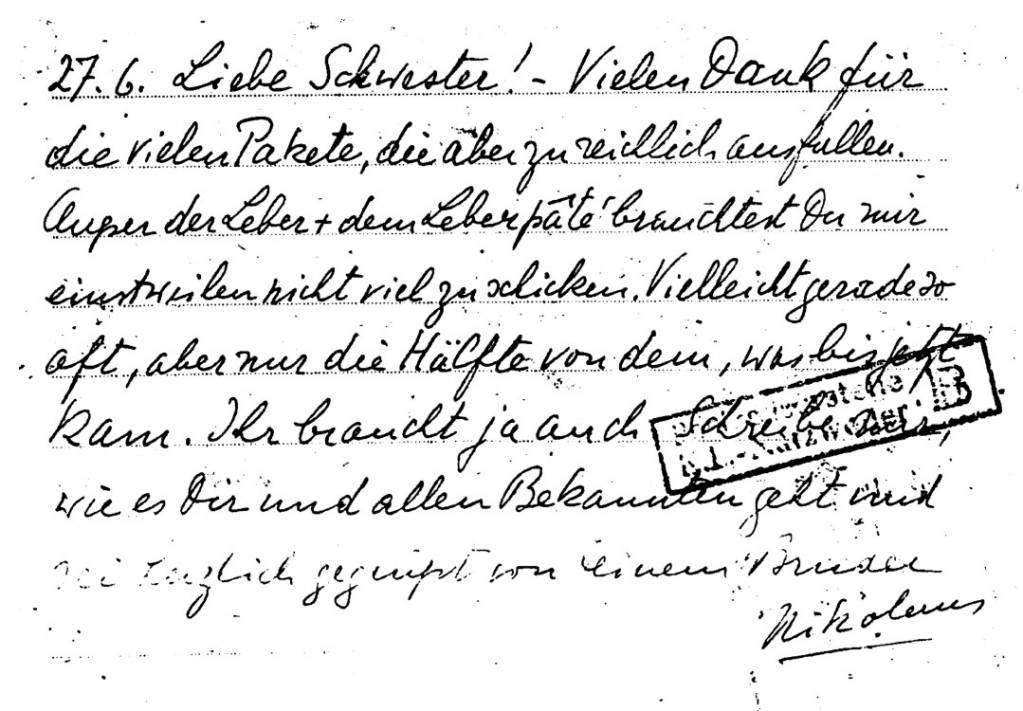 27. 6. Liebe Schwester! - Vielen Dank für
die vielen Pakete, die aber zu reichlich ausfallen.
Außer der Leber + dem Leberpâté brauchtest Du mir
einstweilen nicht viel zu schicken. Vielleicht gerade so
oft, aber nur die Hälfte von dem, was bis jetzt
kam. Ihr braucht ja auch Schreibe
wie es Dir und allen Bekannten geht und
sei herzlich gegrüßt von einem Bruder
Nikolaus